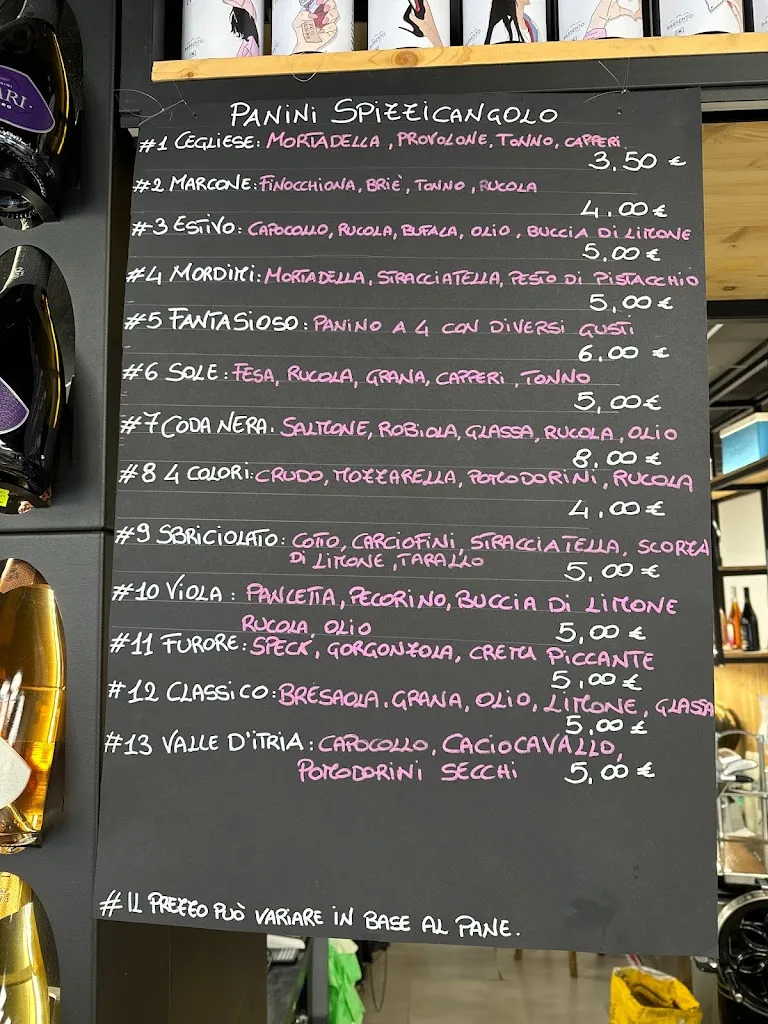 PANINI SPIZZICANGOLO
#1 CEGLIESE: MORTADELLA, PROVOLONE, TONNO, CAPPERI
3,50 €
#2 MARCONE: FINOCCHIONA, BRIE', TONNO, RUCOLA
4,00 €
#3 ESTIVO: CAPOCOLLO, RUCOLA, BUFALA, OLIO, BUCCIA DI LIMONE
5,00 €
#4 MORDIMI: MORTADELLA, STRACCIATELLA, PESTO DI PISTACCHIO
5,00 €
#5 FANTASIOSO: PANINO A 4 CON DIVERSI GUSTI
6,00 €
#6 SOLE: FESA, RUCOLA, GRANA, CAPPERI, TONNO
5,00 €
#7 CODA NERA: SALMONE, ROBIOLA, GLASSA, RUCOLA, OLIO
8,00 €
#8 4 COLORI: CRUDO, MOZZARELLA, POMODORINI, RUCOLA
4,00 €
#9 SBRICIOLATO: COTTO, CARCIOFINI, STRACCIATELLA, SCORZA
DI LIMONE, TARALLO
5,00 €
#10 VIOLA: PANCETTA, PECORINO, BUCCIA DI LIMONE
RUCOLA, OLIO 5,00 €
#11 FURORE: SPECK, GORGONZOLA, CREMA PICCANTE
5,00 €
#12 CLASSICO: BRESAOLA, GRANA, OLIO, LIMONE, GLASSA
5,00 €
#13 VALLE D'ITRIA: CAPOCOLLO, CACIOCAVALLO,
POMODORINI SECCHI 5,00 €
# IL PREZZO PUÒ VARIARE IN BASE AL PANE.